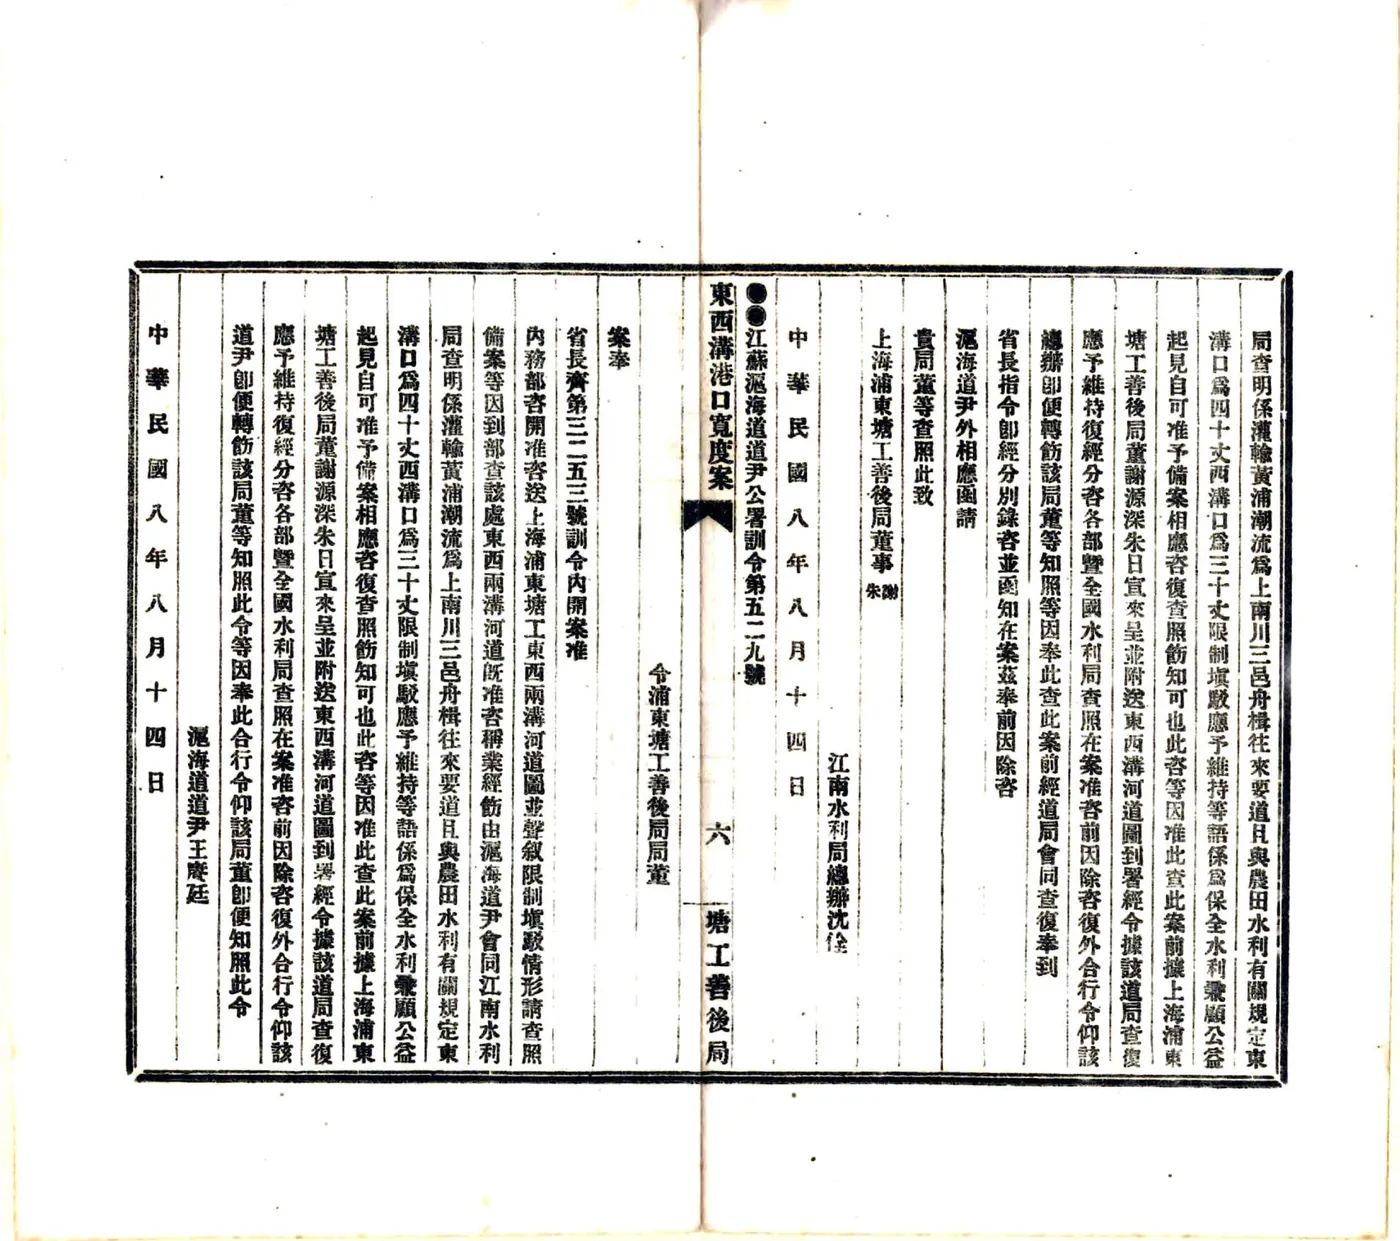 局查明係灌輸黃浦潮流爲上南川三邑舟楫往來要道且與農田水利有關規定東
溝口爲四十丈西溝口爲三十丈限制塡駁應予維持等語係爲保全水利兼顧公益
起見自可准予備案相應咨復查照飭知可也此咨等因准此查此案前據上海浦東
塘工善後局董謝源深朱日宣來呈並附送東西溝河道圖到署經令據該道局查復
應予維持復經分咨各部暨全國水利局查照在案准咨前因除咨復外合行令仰該
總辦卽便轉飭該局董等知照等因奉此查此案前經道局會同查復奉到
省長指令卽經分別錄咨並函知在案茲奉前因除咨
滬海道尹外相應函請
貴局董等查照此致
上海浦東塘工善後局董事謝朱
江南水利局總辦沈佺
中華民國八年八月十四日
●●江蘇滬海道道尹公署訓令第五二九號
東西溝港口寬度案
六
塘工善後局
令浦東塘工善後局局董
案奉
省長齊第三二五三號訓令內開案准
內務部咨開准咨送上海浦東塘工東西兩溝河道圖並聲敘限制塡駁情形請查照
備案等因到部查該處東西兩溝河道旣准咨稱業經飭由滬海道尹會同江南水利
局查明係灌輸黃浦潮流爲上南川三邑舟楫往來要道且與農田水利有關規定東
溝口爲四十丈西溝口爲三十丈限制塡駁應予維持等語係爲保全水利兼顧公益
起見自可准予備案相應咨復查照飭知可也此咨等因准此查此案前據上海浦東
塘工善後局董謝源深朱日宣來呈並附送東西溝河道圖到署經令據該道局查復
應予維持復經分咨各部暨全國水利局查照在案准咨前因除咨復外合行令仰該
道尹卽便轉飭該局董等知照此令等因奉此合行令仰該局董卽便知照此令
滬海道道尹王賡廷
中華民國八年八月十四日